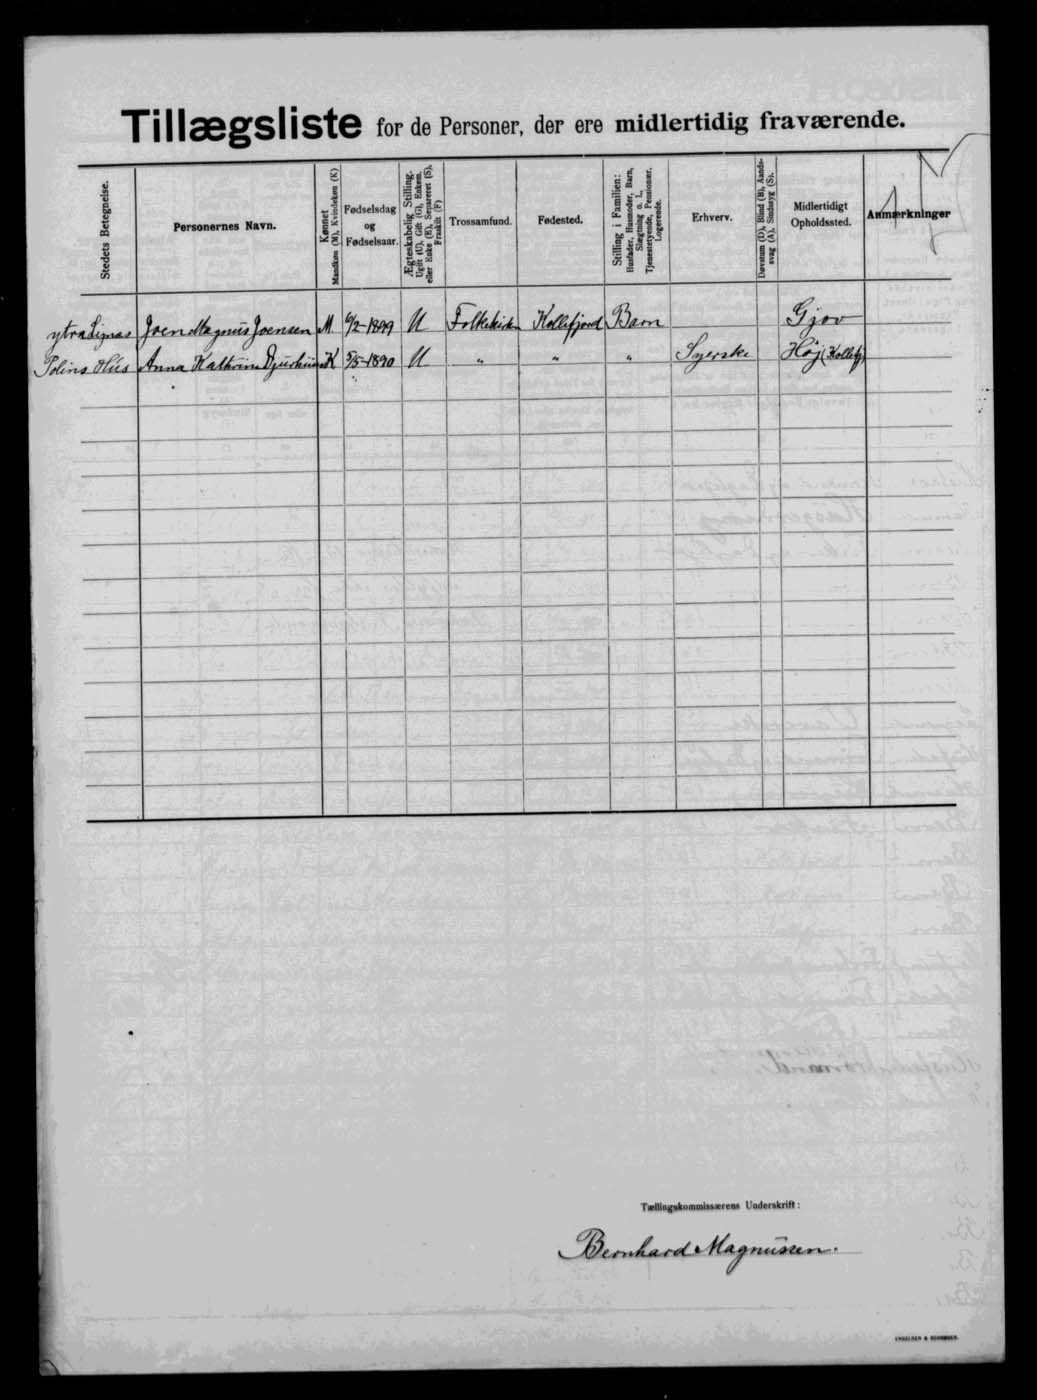 Tillægsliste for de Personer, der ere midlertidig fraværende.
Stedets Betegnelse.
Personernes Navn.
Kønnet
Mandkøn (M), Kvindekøn (K)
Fødselsdag
og
Fødselsaar.
Ægteskabelig Stilling.
Ugift (U), Gift (G), Enkem.
eller Enke (E), Separeret (S),
Fraskilt (F)
Trossamfund.
Fødested.
Stilling i Familien:
Husfader, Husmoder, Barn,
Slægtning o. l.,
Tjenestetyende, Pensionær,
Logerende.
Erhverv.
Døvstum (D), Blind (B), Aands-
svag (A), Sindssyg (S).
Midlertidigt
Opholdssted.
Anmærkninger
ytra Lignas Joen Magnus Joensen M 6/2-1899 U Folkekirken Kollefjord Barn Gjov
Polins Hús Anna Kathrine Djurhuus K 5/5-1890 U " " " Syerske Høj (Kollefj)
Tællingskommissærens Underskrift:
Bernhard Magnussen.